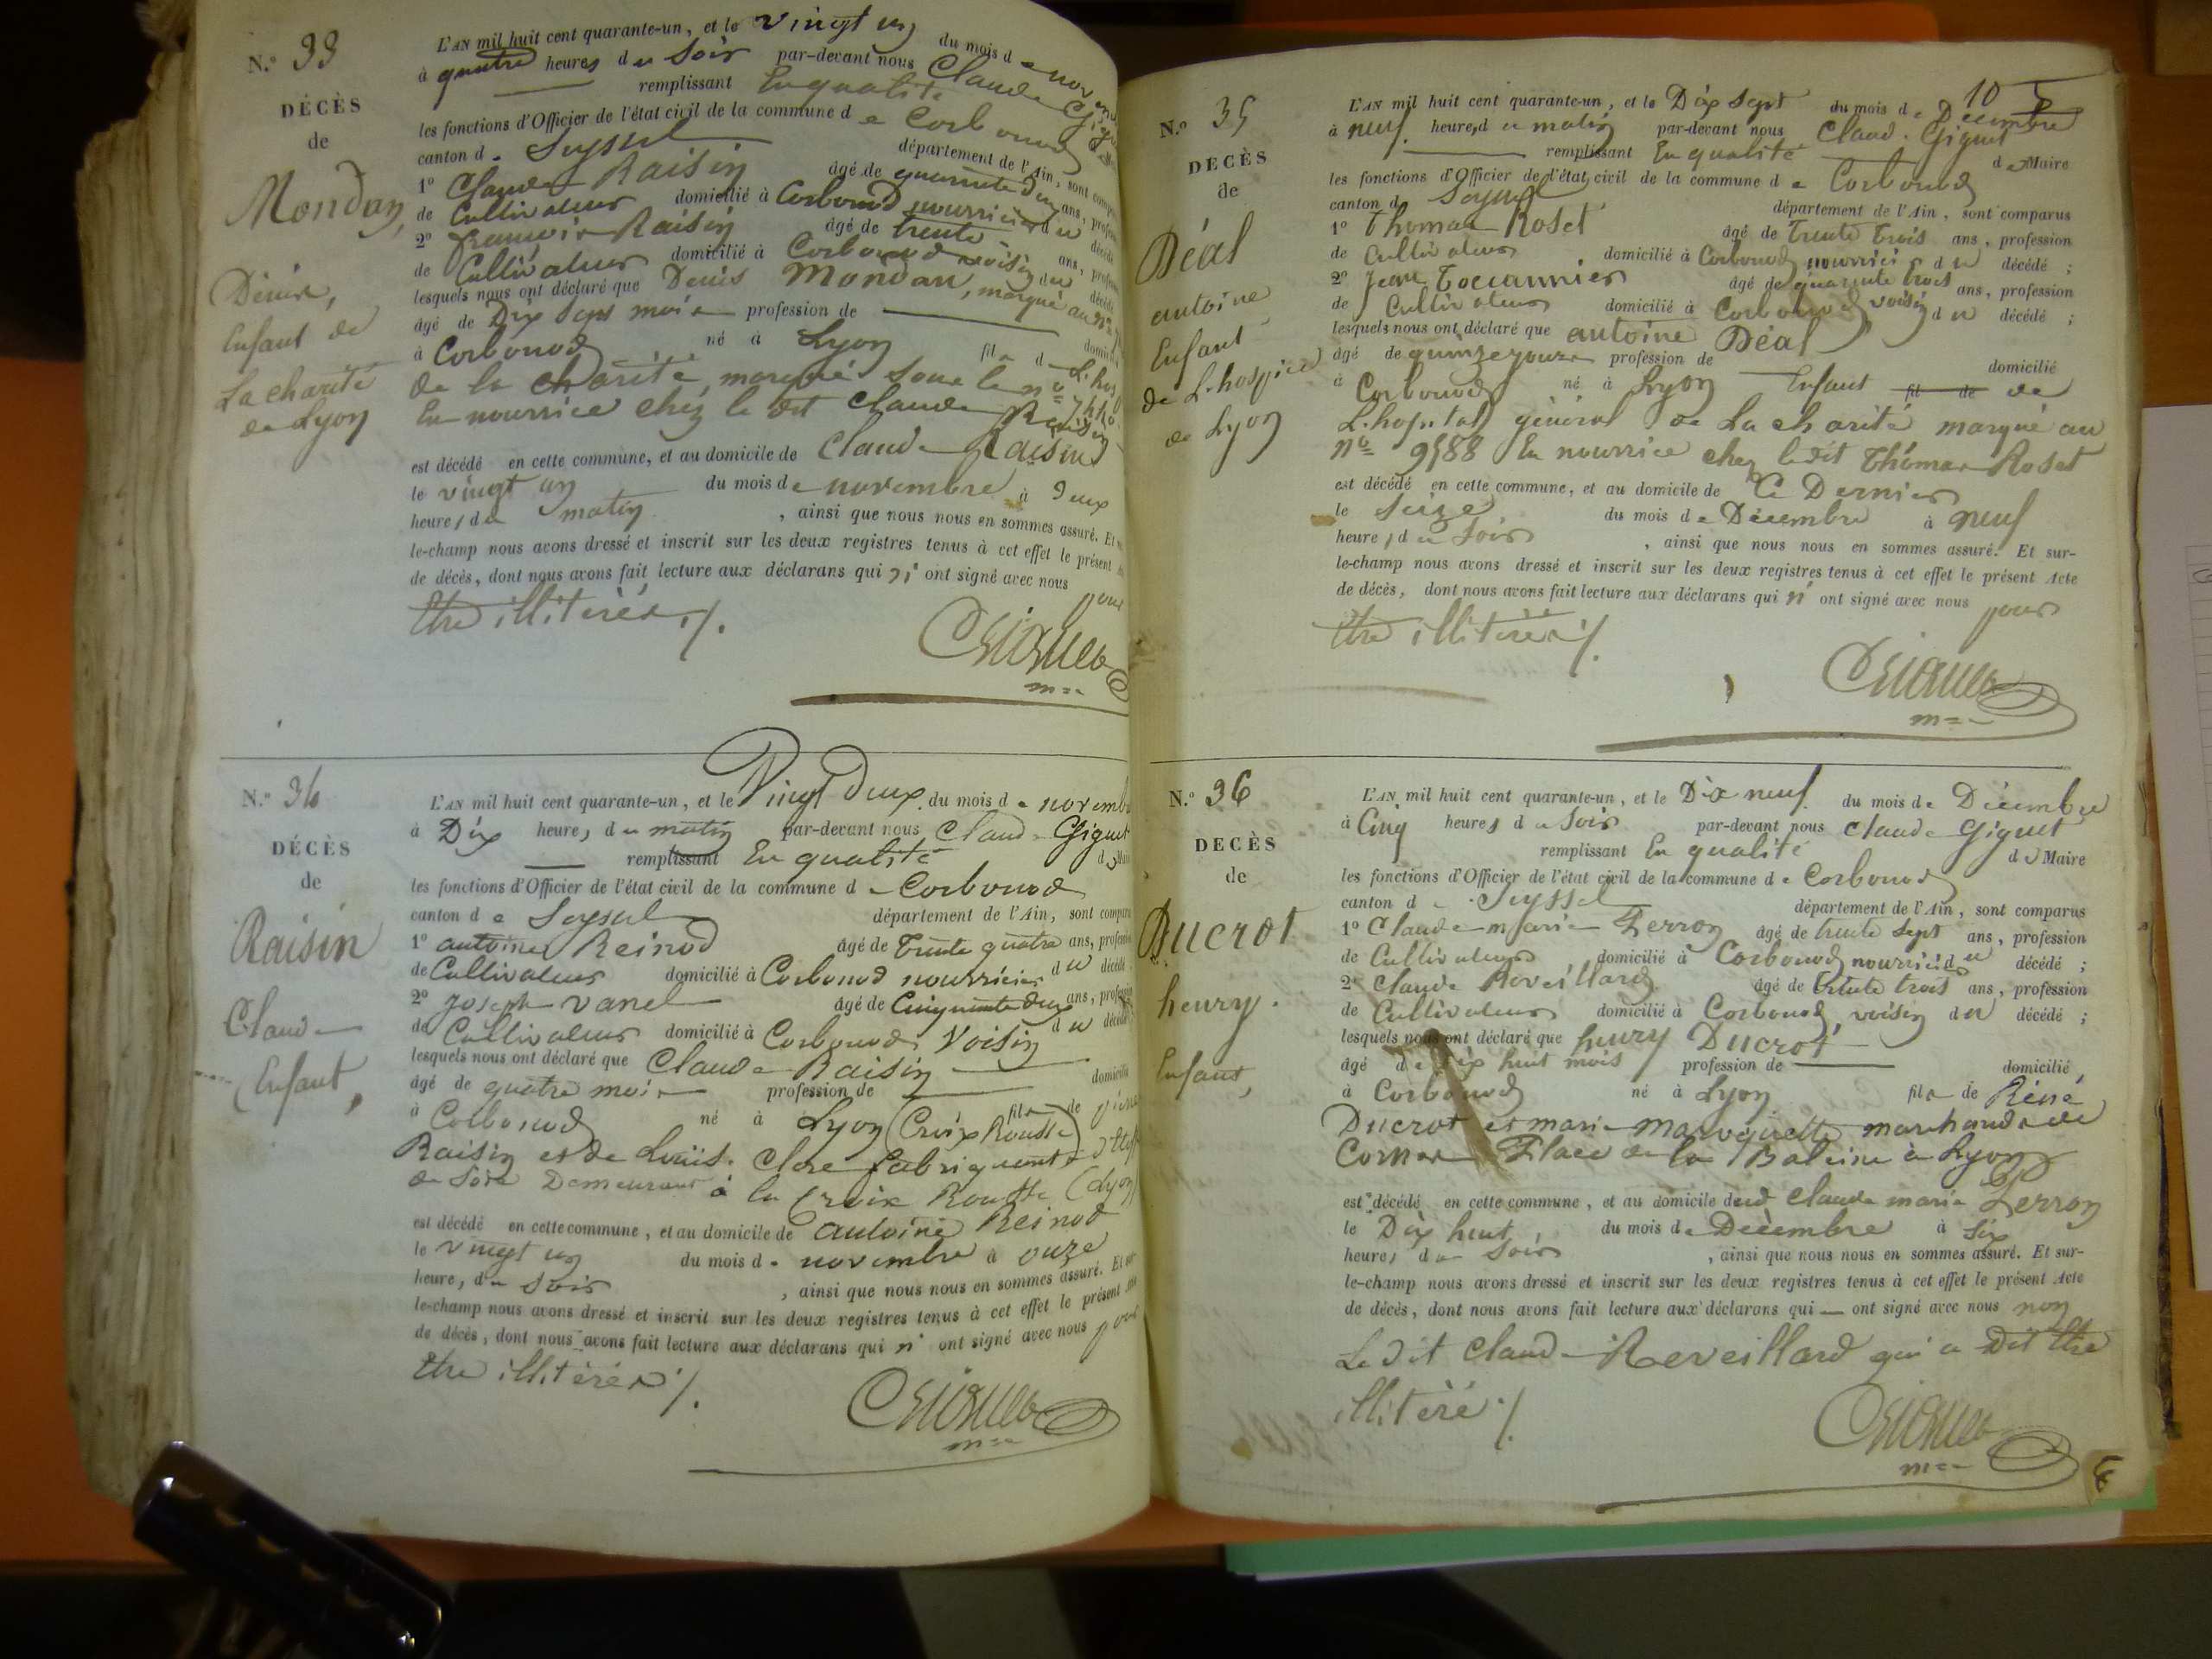 N.° 33
DÉCÈS
de
Monday,
Dénis,
Enfant de
La charité
de Lyon
L'AN mil huit cent quarante-un, et le vingt un du mois de
à quatre heures du soir par-devant nous Claude
remplissant En qualité
les fonctions d'Officier de l'état civil de la commune de Corbonod
canton de Seyssel département de l'Ain, sont
1° Claude Raisin âgé de quarante deux ans,
de Cultivateur domicilié à Corbonod nourricier du
2° François Raisin âgé de trente ans,
de Cultivateur domicilié à Corbonod voisin du décédé
lesquels nous ont déclaré que Denis Mondan, marqué au n°
âgé de Dix sept mois profession de
à Corbonod né à Lyon fils de
de la charité, marqué sous le n°
En nourrice chéz le dit Claude Raisin
est décédé en cette commune, et au domicile de Claude Raisin
le vingt un du mois de novembre à Deux
heures du matin, ainsi que nous nous en sommes assuré. Et
le-champ nous avons dressé et inscrit sur les deux registres tenus à cet effet le présent
de décès, dont nous avons fait lecture aux déclarans qui n' ont signé avec nous pour
être illitérés ./.
N.° 34
DÉCÈS
de
Raisin
Claude
Enfant,
L'AN mil huit cent quarante-un, et le Vingt Deux du mois de novembre
à Dix heures du matin par-devant nous Claude Giguet
remplissant En qualité
les fonctions d'Officier de l'état civil de la commune de Corbonod
canton de Seyssel département de l'Ain, sont
1° antoine Reinod âgé de Trente quatre ans,
de Cultivateur domicilié à Corbonod nourricier du décédé
2° Joseph vanel âgé de Cinquante deux ans,
de Cultivateur domicilié à Corbonod Voisin du
lesquels nous ont déclaré que Claude Raisin
âgé de quatre mois profession de
à Corbonod né à Lyon (Croix Rousse) fils de
Raisin et de Louis. Clere fabriquants
de Soie Demeurant à la Croix Rousse (Lyon)
est décédé en cette commune, et au domicile de antoine Reinod
le vingt un du mois de novembre à onze
heures du soir, ainsi que nous nous en sommes assuré. Et
le-champ nous avons dressé et inscrit sur les deux registres tenus à cet effet le présent
de décès, dont nous avons fait lecture aux déclarans qui n' ont signé avec nous pour
être illitérés ./.
10
N.° 35
DÉCÈS
de
Déal
antoine
Enfant
de L'hospice
de Lyon
L'AN mil huit cent quarante-un, et le Dix sept du mois de Décembre
à neuf heures du matin par-devant nous Claude Giguet
remplissant En qualité de Maire
les fonctions d'Officier de l'état civil de la commune de Corbonod
canton de Seyssel département de l'Ain, sont comparus
1° Thomas Roset âgé de Trente Trois ans, profession
de Cultivateur domicilié à Corbonod nourricier du décédé ;
2° Jean Toccannier âgé de quarante trois ans, profession
de Cultivateur domicilié à Corbonod voisin du décédé ;
lesquels nous ont déclaré que antoine Déal
âgé de quinze jours profession de domicilié
à Corbonod né à Lyon Enfant fil de de
L'hopital général de La charité marqué au
n° 9588 En nourrice chez le dit Thomas Roset
est décédé en cette commune, et au domicile de Ce Dernier
le Seize du mois de Décembre à neuf
heures du soir, ainsi que nous nous en sommes assuré. Et sur-
le-champ nous avons dressé et inscrit sur les deux registres tenus à cet effet le présent Acte
de décès, dont nous avons fait lecture aux déclarans qui n' ont signé avec nous pour
être illitérés ./.
N.° 36
DÉCÈS
de
Ducrot
henry.
Enfant,
L'AN mil huit cent quarante-un, et le Dix neuf du mois de Décembre
à Cinq heures du soir par-devant nous Claude Giguet
remplissant En qualité de Maire
les fonctions d'Officier de l'état civil de la commune de Corbonod
canton de Seyssel département de l'Ain, sont comparus
1° Claude marie Perron âgé de trente sept ans, profession
de Cultivateur domicilié à Corbonod nourricier du décédé ;
2° Claude Reveillard âgé de trente trois ans, profession
de Cultivateur domicilié à Corbonod, voisin du décédé ;
lesquels nous ont déclaré que henry Ducrot
âgé de dix huit mois profession de domicilié
à Corbonod né à Lyon fils de Réné
Ducrot et marie maroguette marchands de
Cornes Place de la Baleine à Lyon
est décédé en cette commune, et au domicile dud Claude marie Perron
le Dix huit du mois de Décembre à Six
heures du soir, ainsi que nous nous en sommes assuré. Et sur-
le-champ nous avons dressé et inscrit sur les deux registres tenus à cet effet le présent Acte
de décès, dont nous avons fait lecture aux déclarans qui — ont signé avec nous non
Le dit Claude Reveillard qui a Dit être
illitéré ./.